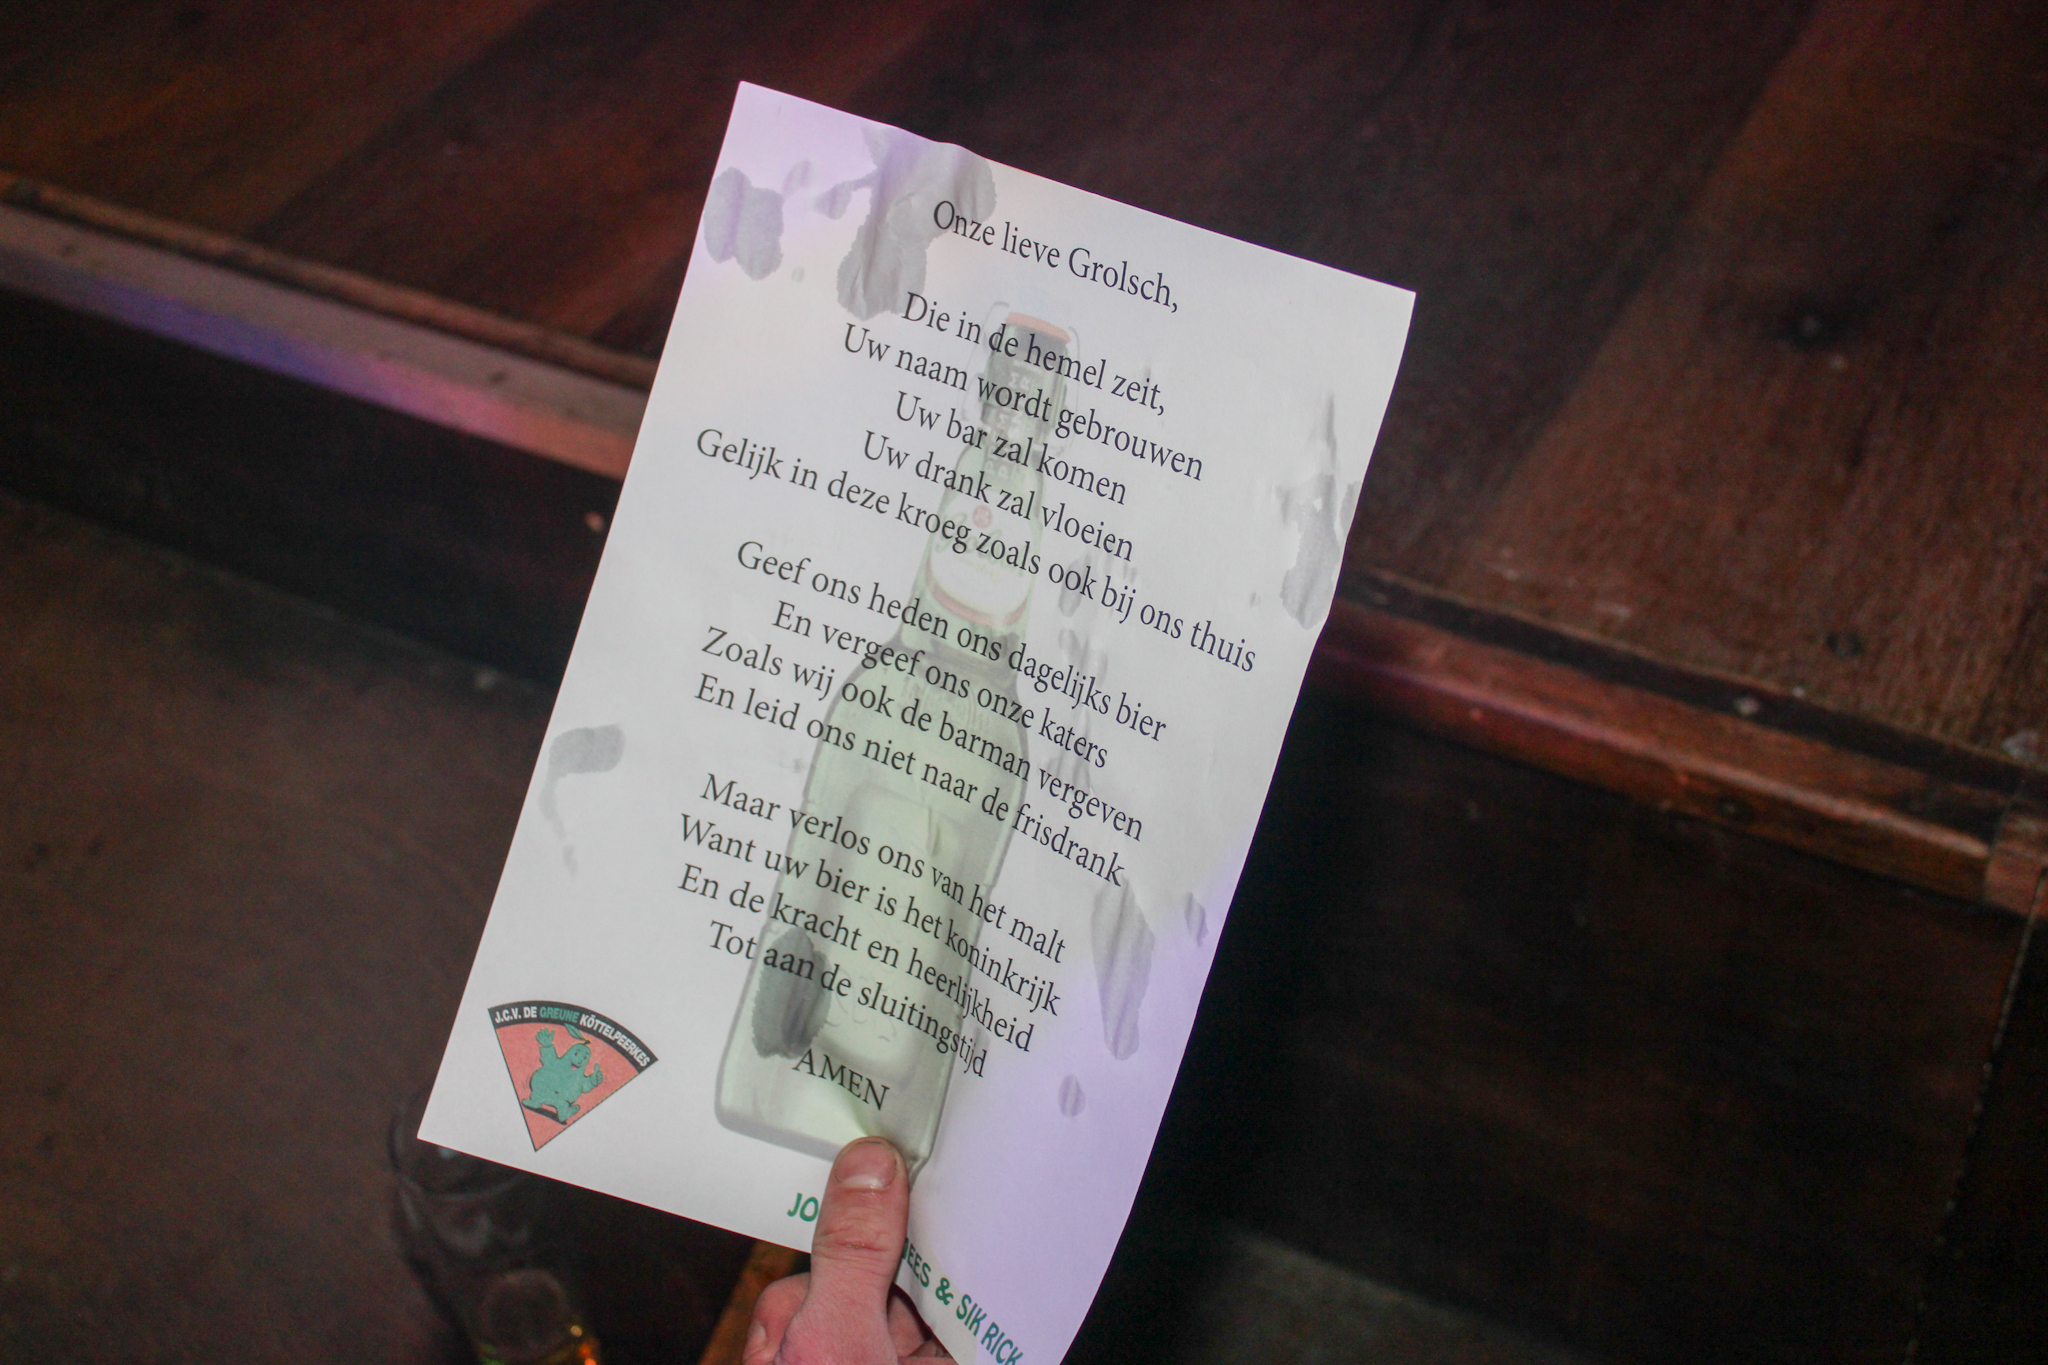 Onze lieve Grolsch,
Die in de hemel zeit,
Uw naam wordt gebrouwen
Uw bar zal komen
Uw drank zal vloeien
Gelijk in deze kroeg zoals ook bij ons thuis
Geef ons heden ons dagelijks bier
En vergeef ons onze katers
Zoals wij ook de barman vergeven
En leid ons niet naar de frisdrank
Maar verlos ons van het malt
Want uw bier is het koninkrijk
En de kracht en heerlijkheid
Tot aan de sluitingstijd
AMEN
J.C.V. DE GREUNE KÖTTELPEERKES
& SIK RICK